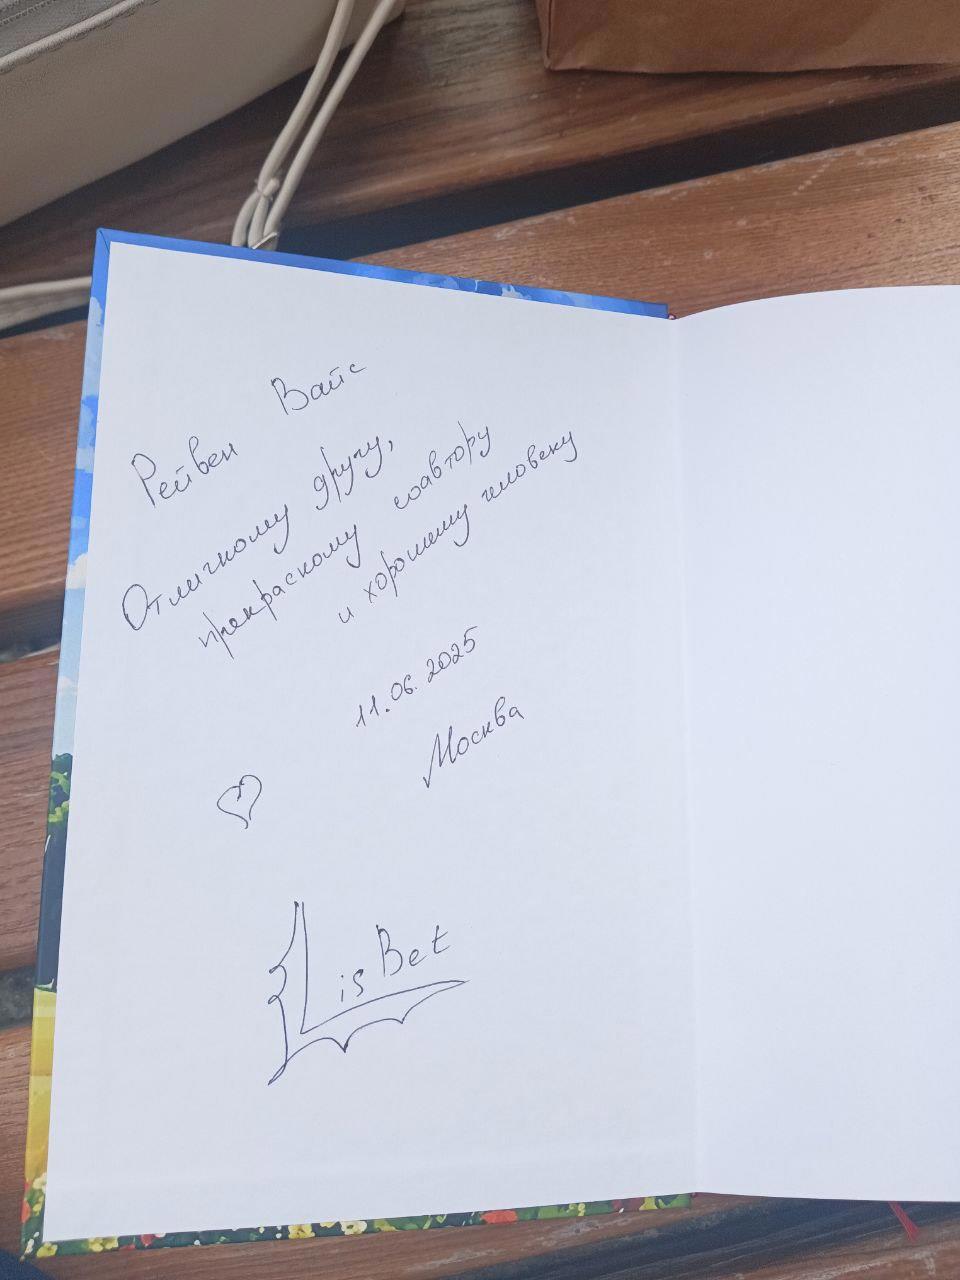 Рейвен Вайс
Отличному другу,
прекрасному соавтору
и хорошему человеку
11.06.2025
Москва
LisBet